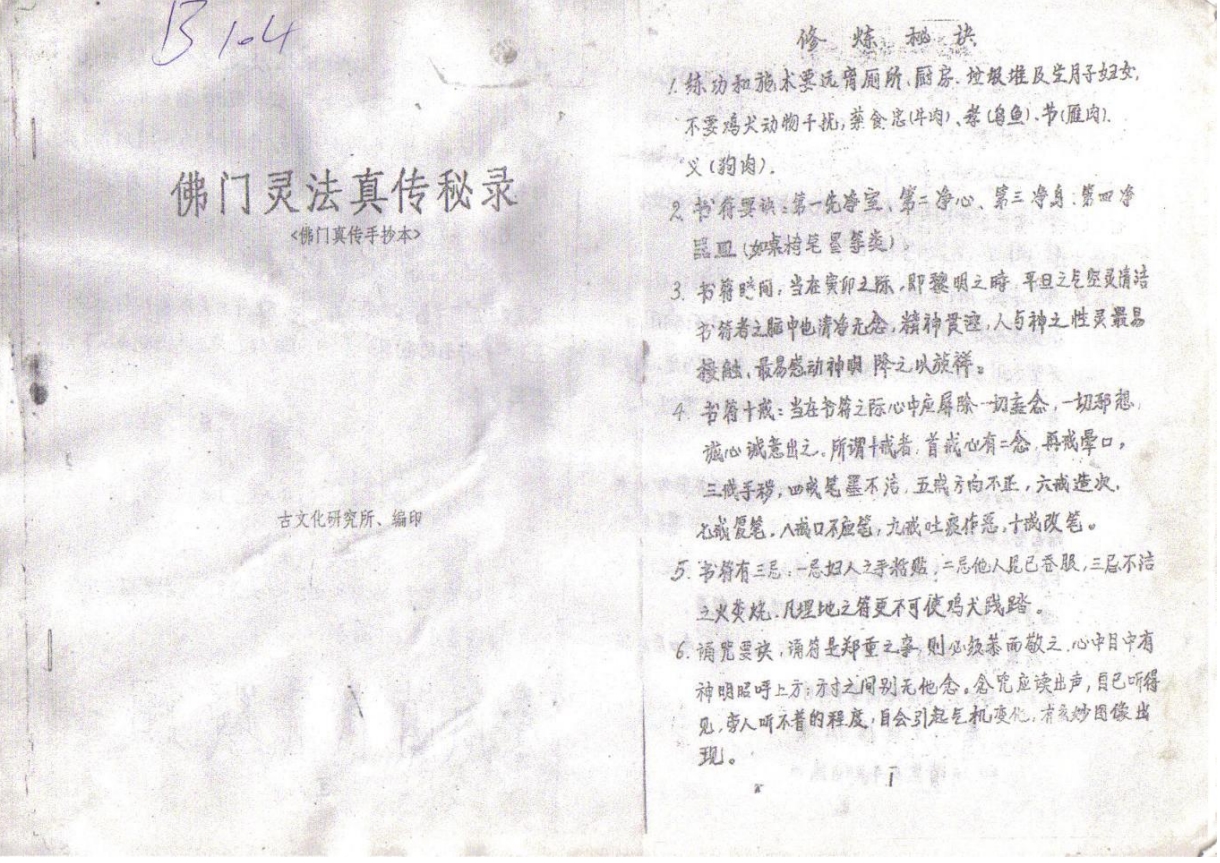 B104
佛门灵法真传秘录
<佛门真传手抄本>
古文化研究所、编印
修炼秘诀
1. 练功和施术要远离厕所、厨房、垃圾堆及坐月子妇女,
不要鸡犬动物干扰,荤食忠(牛肉)、孝(乌鱼)、节(雁肉).
义(狗肉).
2. 书符要诀:第一先净室、第二净心、第三净身:第四净
器皿(如桌椅笔墨等类).
3. 书符时间,当在寅卯之际,即黎明之時,平旦之气空灵清洁
书符者之脑中也清净无念,精神贯注,人与神之性灵最易
接触、最易感动神明 降之以 祥。
4. 书符十戒:当在书符之际心中应屏除一切盡念,一切邪想,
诚心诚意出之。所谓十戒者,首戒心有二念,再戒晕口,
三戒手秽,四戒笔墨不洁,五戒方向不正,六戒造次,
七戒复笔,八戒口不应笔,九戒吐痰作恶,十戒改笔。
5. 书符有三忌:一忌妇人之手 贴,二忌他人见已吞服,三忌不洁
之火焚烧.凡埋地之符更不可使鸡犬践踏。
6. 诵咒要诀,诵符是郑重之事,则必须恭而敬之.心中目中有
神明照呼上方:方寸之间别无他念。念咒应读出声,自己听得
见,旁人听不着的程度,自会引起气机变化,有玄妙图像出
现。
1